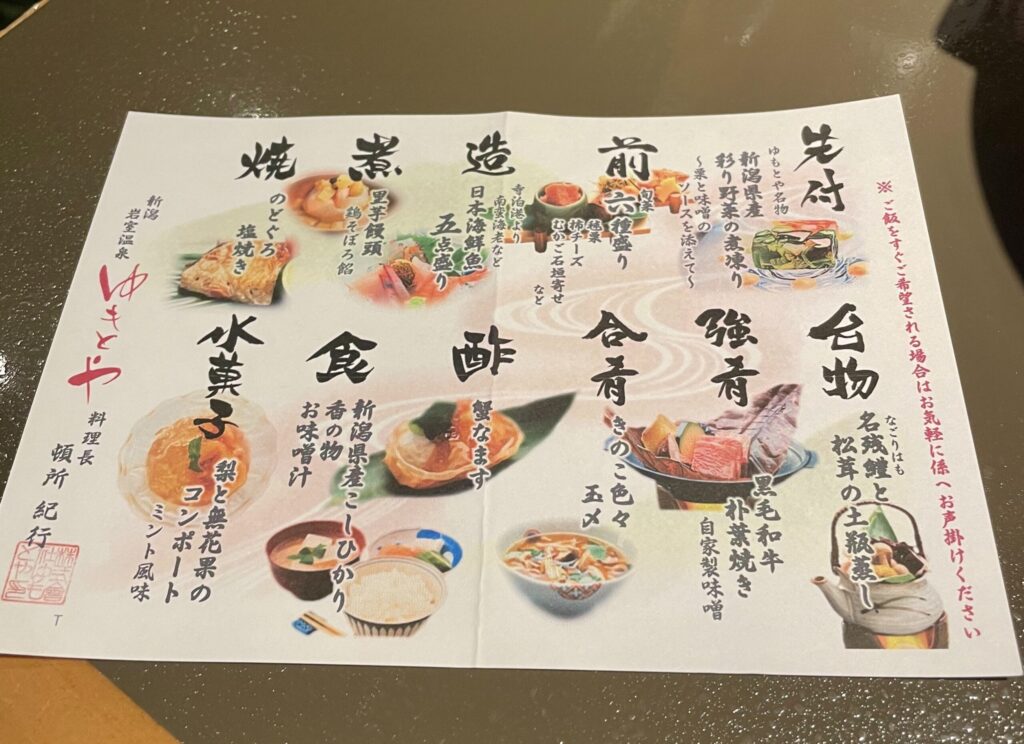 ※ご飯をすぐご希望される場合はお気軽に係へお声掛けください
先付
ゆもとや名物
新潟県産
彩り野菜の煮凍り
～栗と味噌の
ソースを添えて～
前
旬菜
六種盛り
毬栗
柿チーズ
むかご石垣寄せ
など
造
寺泊港より
南蛮海老など
日本海鮮魚
五点盛り
煮
里芋饅頭
鶏そぼろ餡
焼
のどぐろ
塩焼き
名物
なごりはも
名残鱧と
松茸の土瓶蒸し
強肴
黒毛和牛
朴葉焼き
自家製味噌
合肴
きのこ色々
玉〆
酢
蟹なます
食
新潟県産こしひかり
香の物
お味噌汁
水菓子
梨と無花果の
コンポート
ミント風味
新潟
岩室温泉
ゆもとや
料理長
頓所 紀行
T